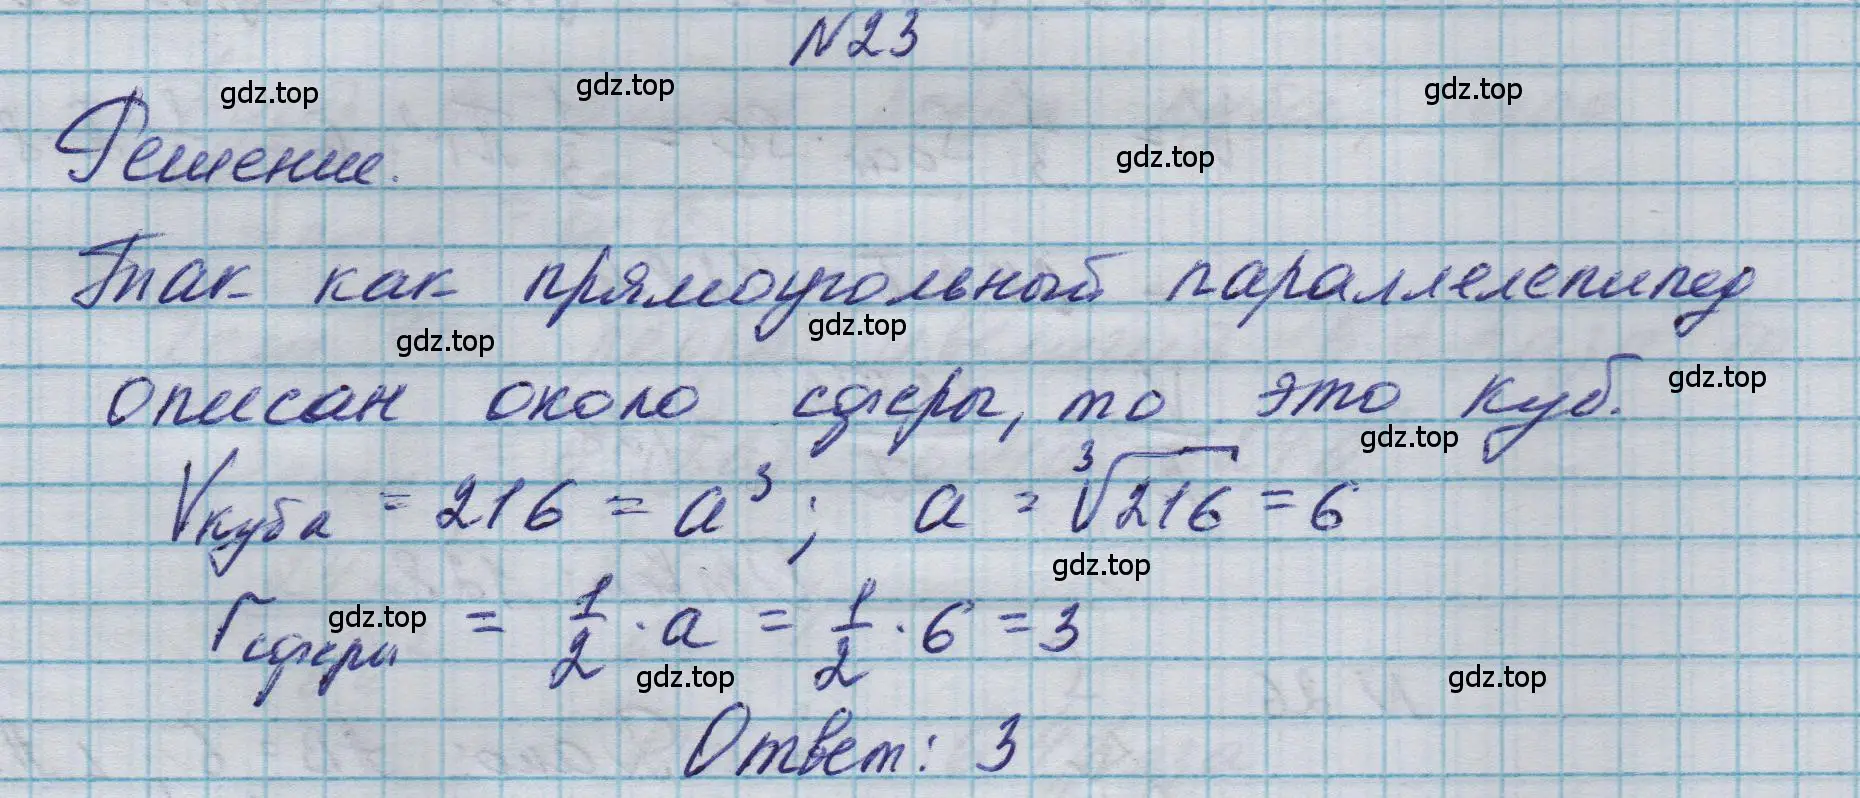 N23
gdz.top gdz.top gdz.top
Решение.
gdz.top
Так как прямоугольный параллелепипед
gdz.top gdz.top
описан около сферы, то это куб.
gdz.top
gdz.top
Vкуба = 216 = a³; a = ³√216 = 6
gdz.top
rсферы = 1/2 · a = 1/2 · 6 = 3
gdz.top
gdz.top gdz.top
Ответ: 3